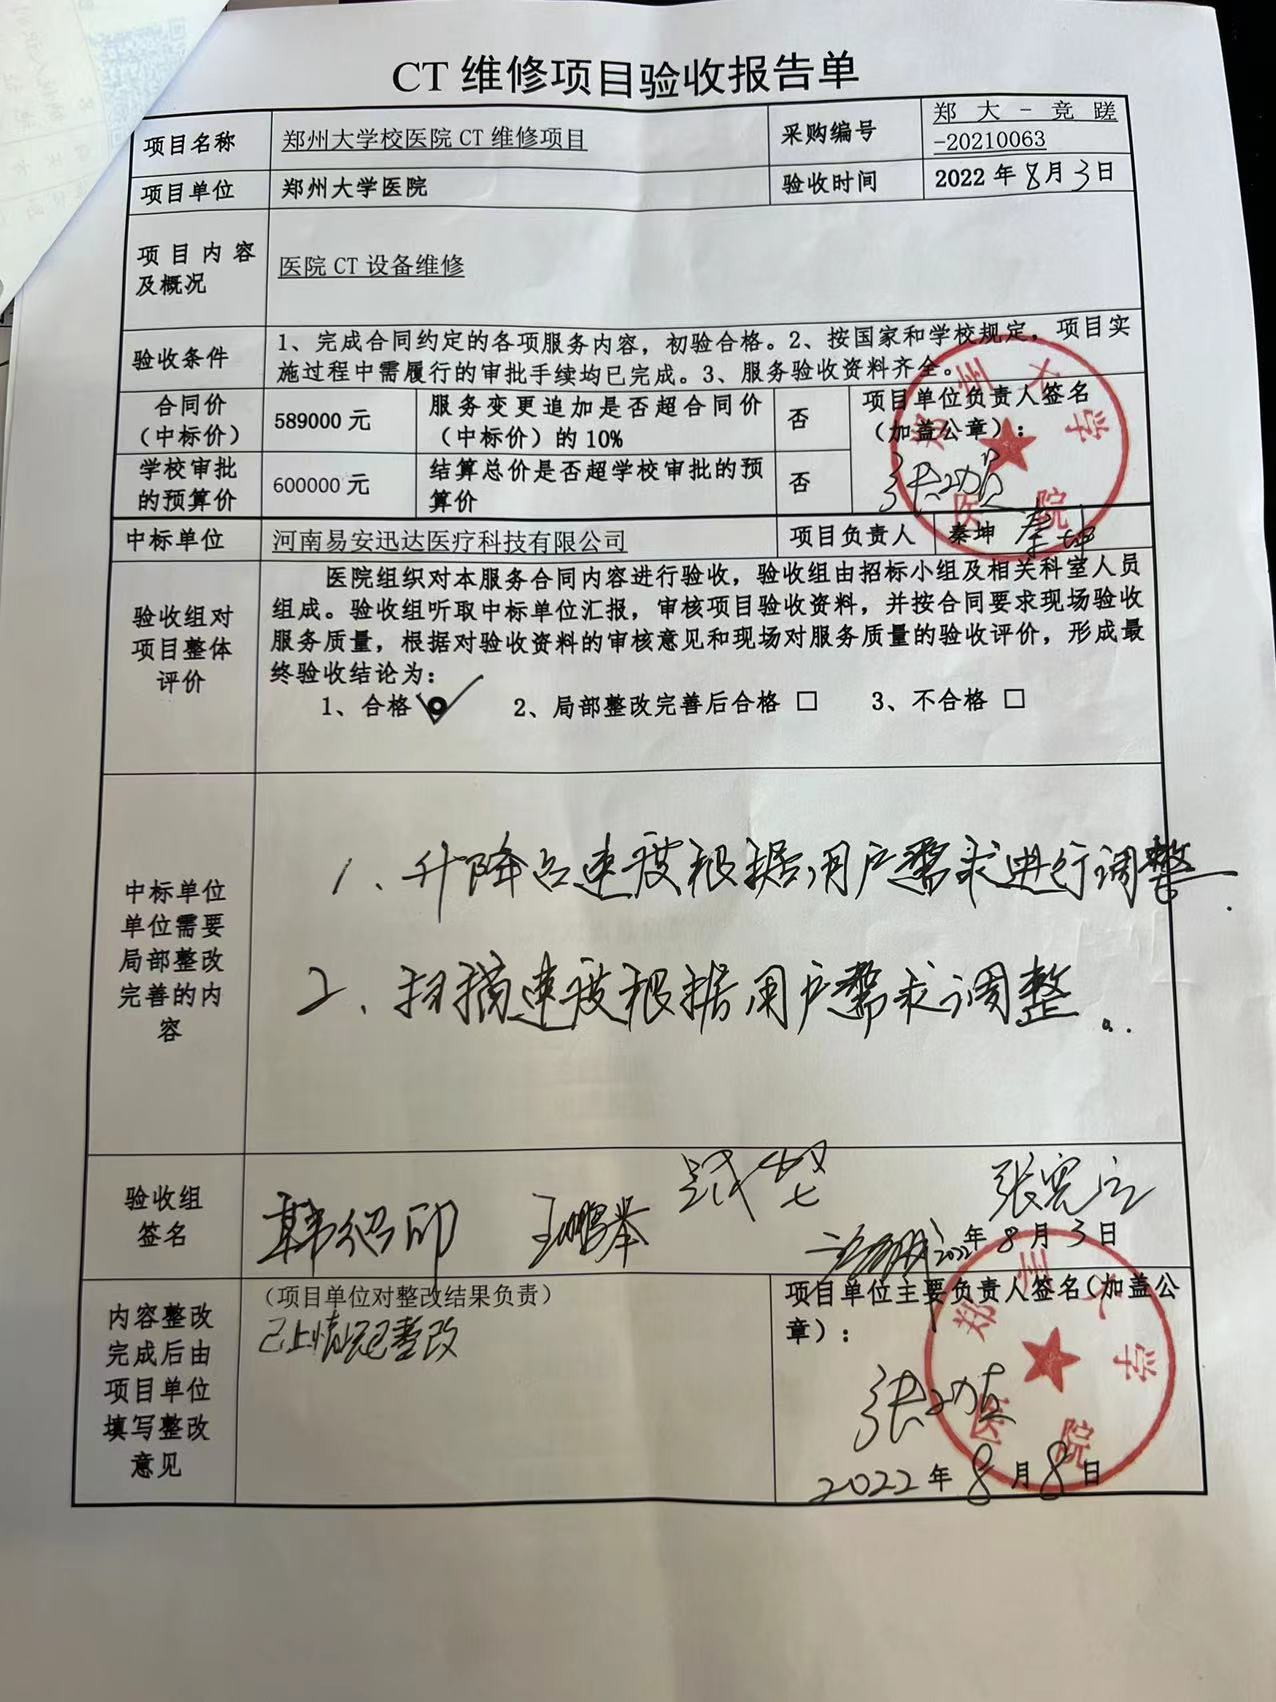 CT 维修项目验收报告单
项目名称
郑州大学校医院 CT 维修项目
采购编号
郑大-竞蹉
-20210063
项目单位
郑州大学医院
验收时间
2022 年 8月 3日
项目内容
及概况
医院 CT 设备维修
验收条件
1、完成合同约定的各项服务内容，初验合格。2、按国家和学校规定，项目实
施过程中需履行的审批手续均已完成。3、服务验收资料齐全。
合同价
（中标价）
589000 元
服务变更追加是否超合同价
（中标价）的 10%
否
项目单位负责人签名
（加盖公章）：
郑州大学
医院
学校审批
的预算价
600000 元
结算总价是否超学校审批的预
算价
否
中标单位
河南易安迅达医疗科技有限公司
项目负责人
秦坤 秦坤
验收组对
项目整体
评价
医院组织对本服务合同内容进行验收，验收组由招标小组及相关科室人员
组成。验收组听取中标单位汇报，审核项目验收资料，并按合同要求现场验收
服务质量，根据对验收资料的审核意见和现场对服务质量的验收评价，形成最
终验收结论为：
1、合格 2、局部整改完善后合格 □ 3、不合格 □
中标单位
单位需要
局部整改
完善的内
容
1、升降台速度根据用户需求进行调整.
2、扫描速度根据用户需求调整
验收组
签名
韩绍印 王鹏举 张宪
2022年 8 月 3 日
内容整改
完成后由
项目单位
填写整改
意见
（项目单位对整改结果负责）
已上情况已整改
项目单位主要负责人签名（加盖公
章）：
郑州大学
医院
2022 年 8 月 8 日